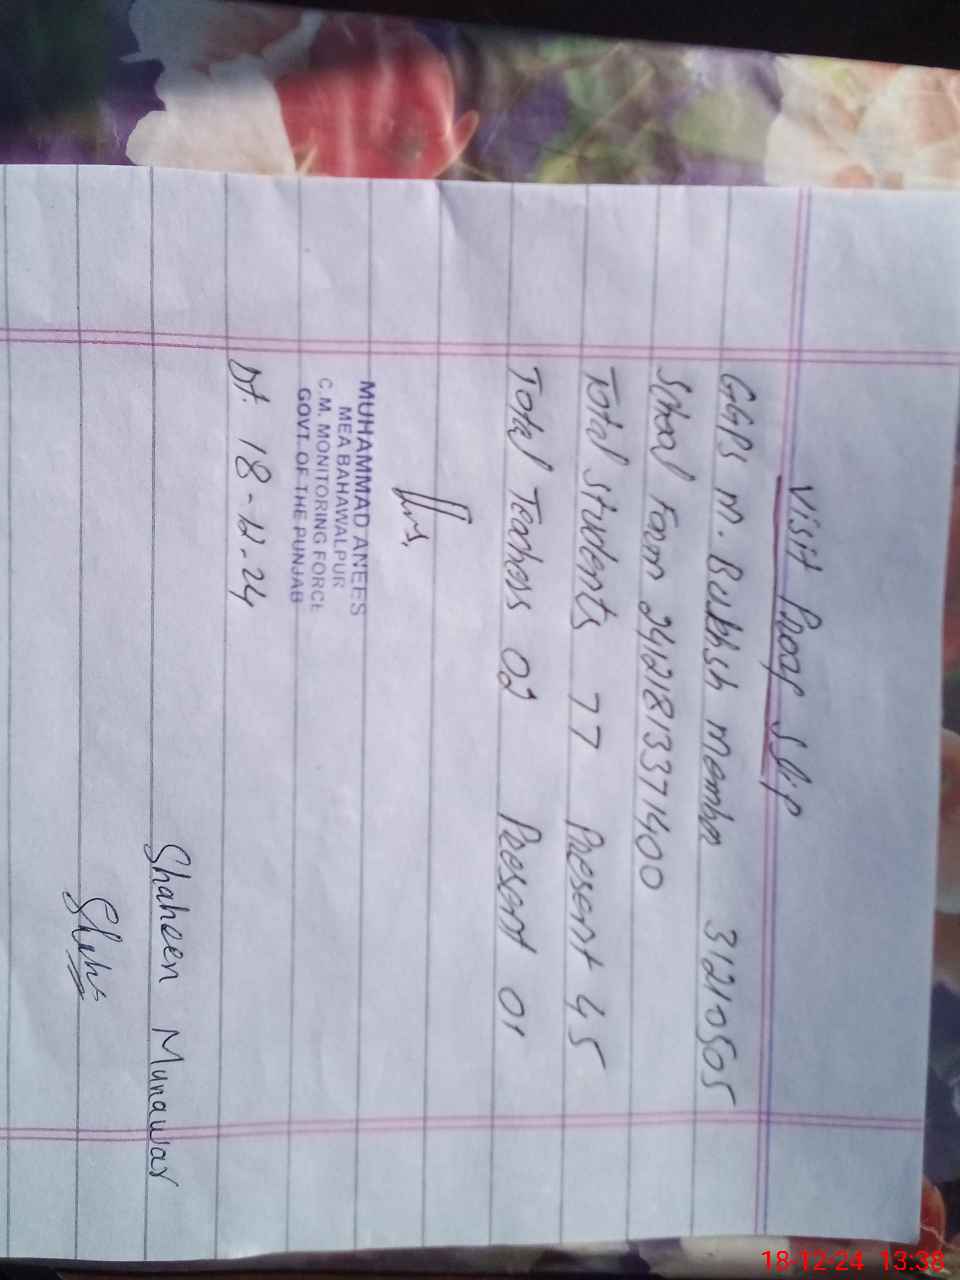 Visit Proof Slip
GGPS M. Bukhsh Memha 31210505
School Farm 24121813371400
Total Students 77 Present 45
Total Teachers 02 Present 01
MUHAMMAD ANEES
MEA BAHAWALPUR
C.M. MONITORING FORCE
GOVT. OF THE PUNJAB
Dt. 18-12-24
Shaheen Munawar
18-12-24 13:38